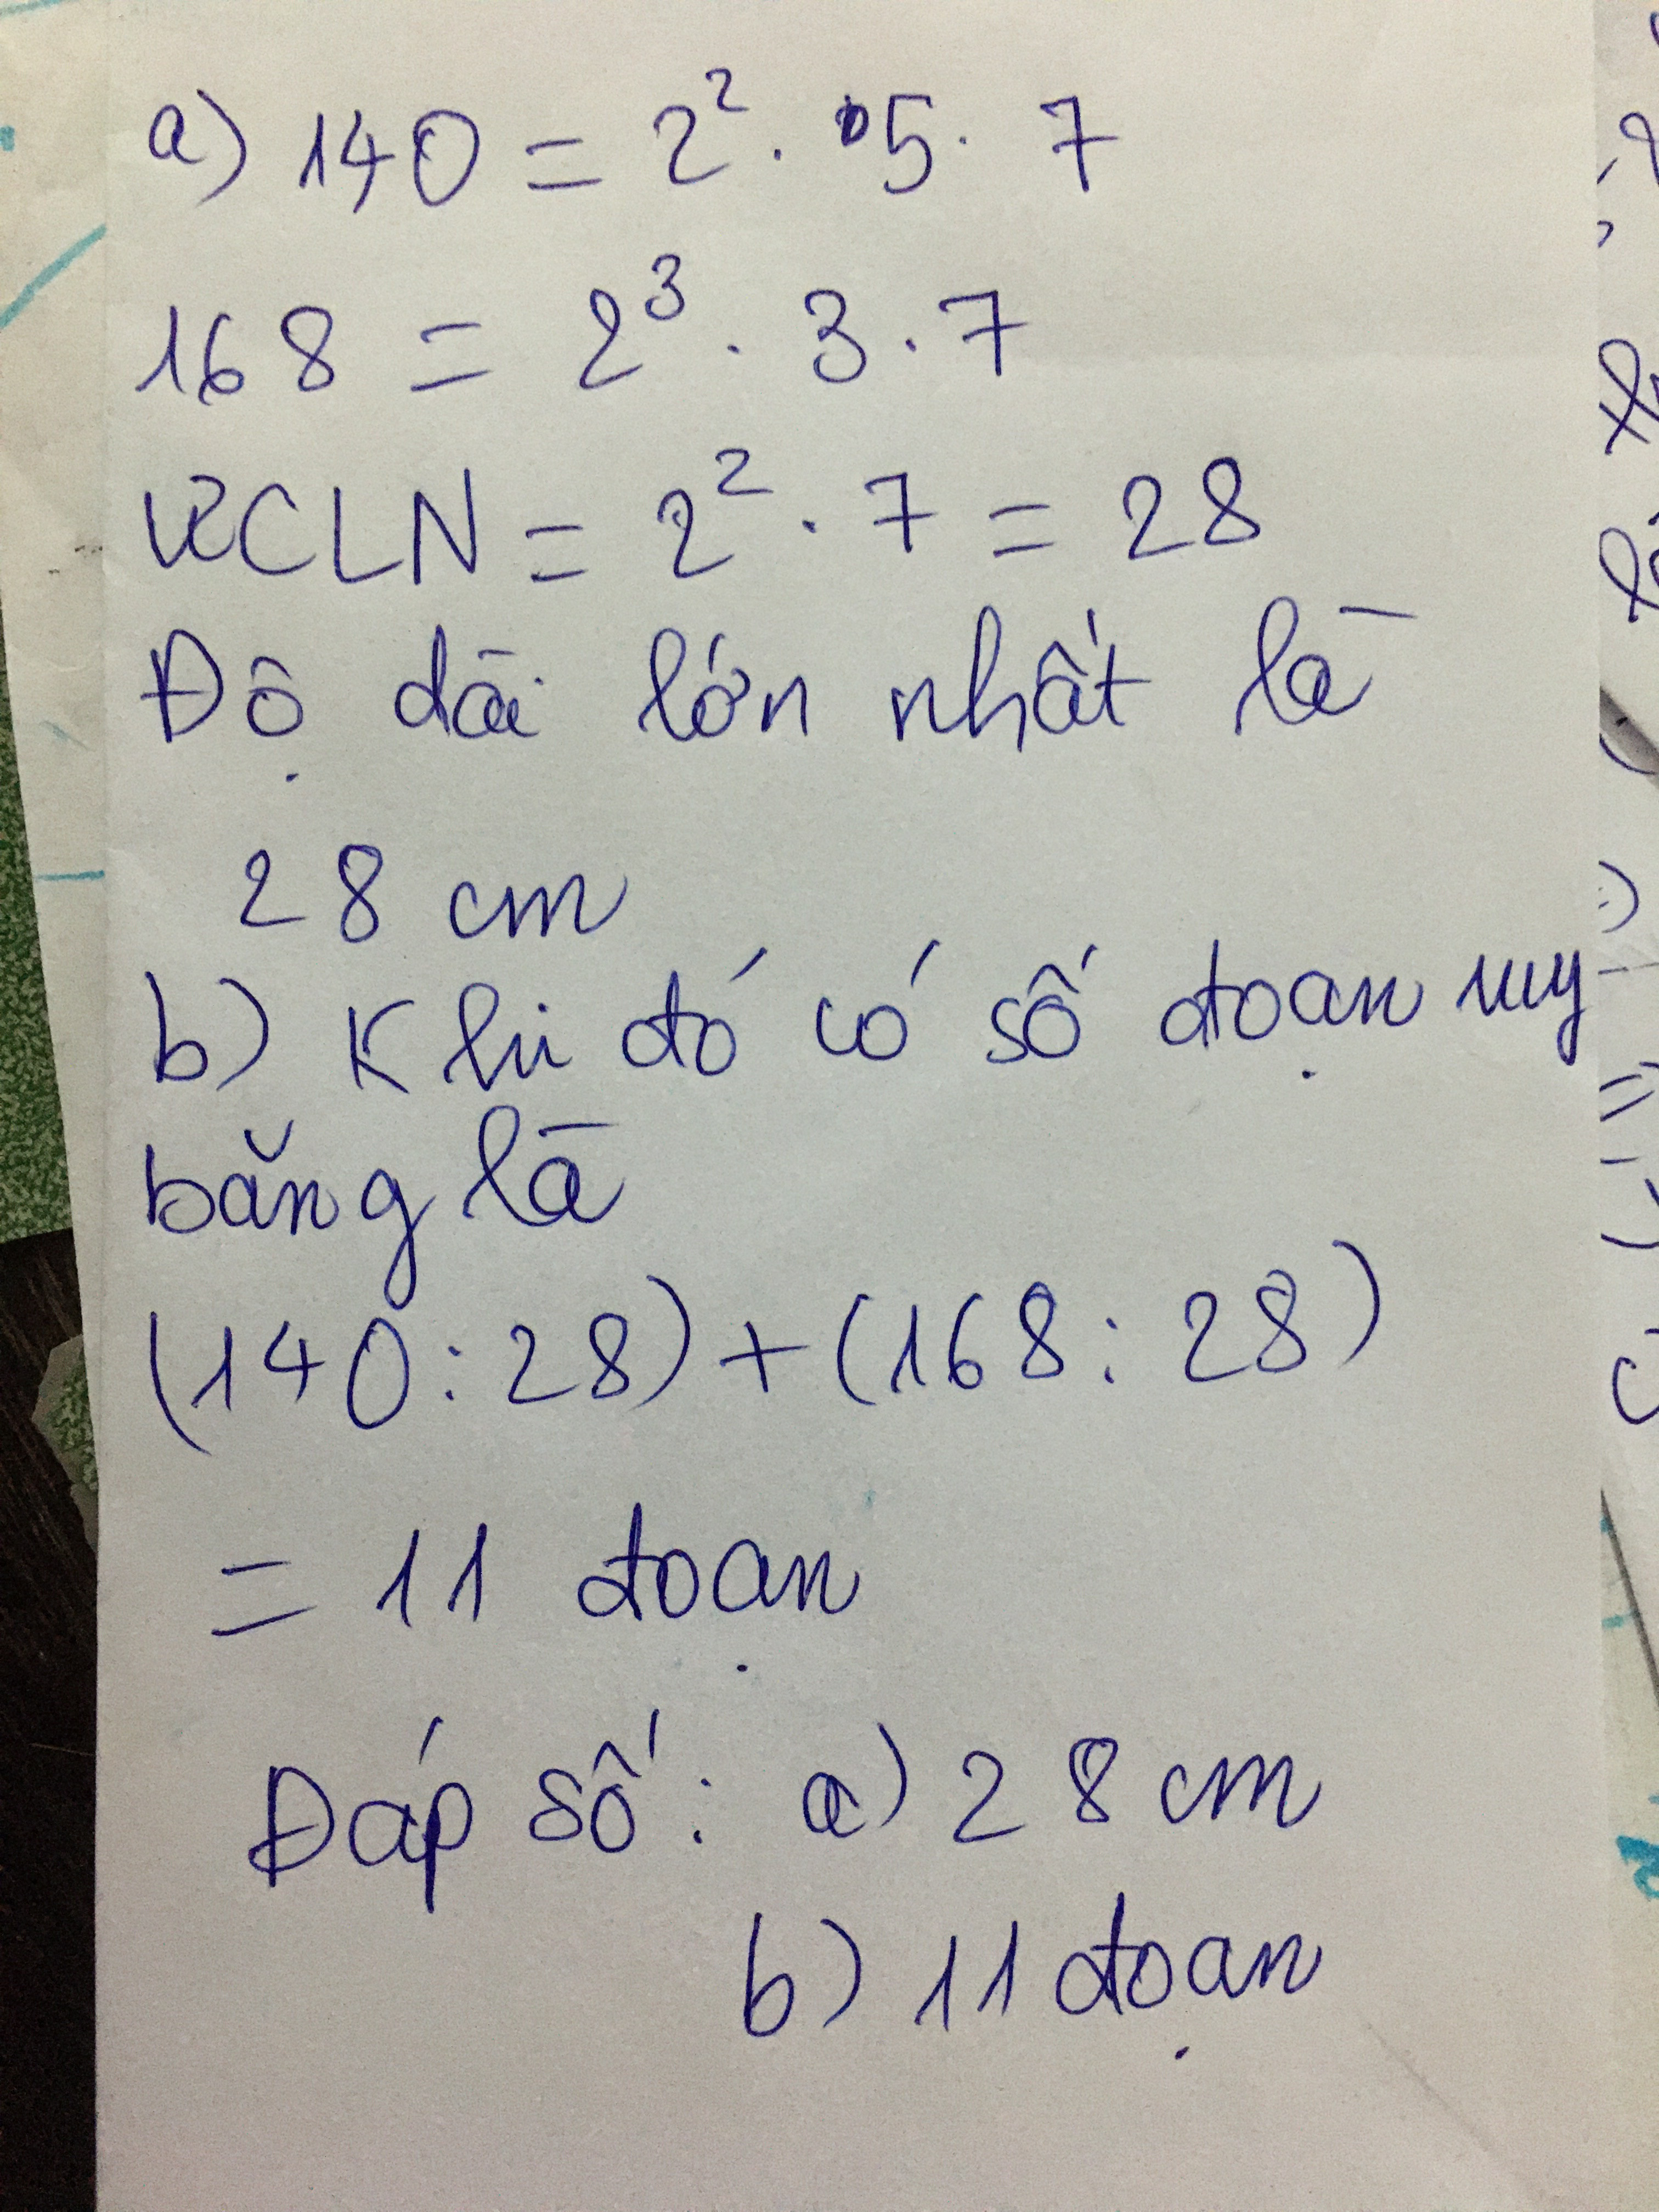 a) 140 = 2² . 5 . 7
168 = 2³ . 3 . 7
ƯCLN = 2² . 7 = 28
Độ dài lớn nhất là
28 cm
b) Khi đó có số đoạn ruy
băng là
(140 : 28) + (168 : 28)
= 11 đoạn
Đáp số: a) 28 cm
b) 11 đoạn